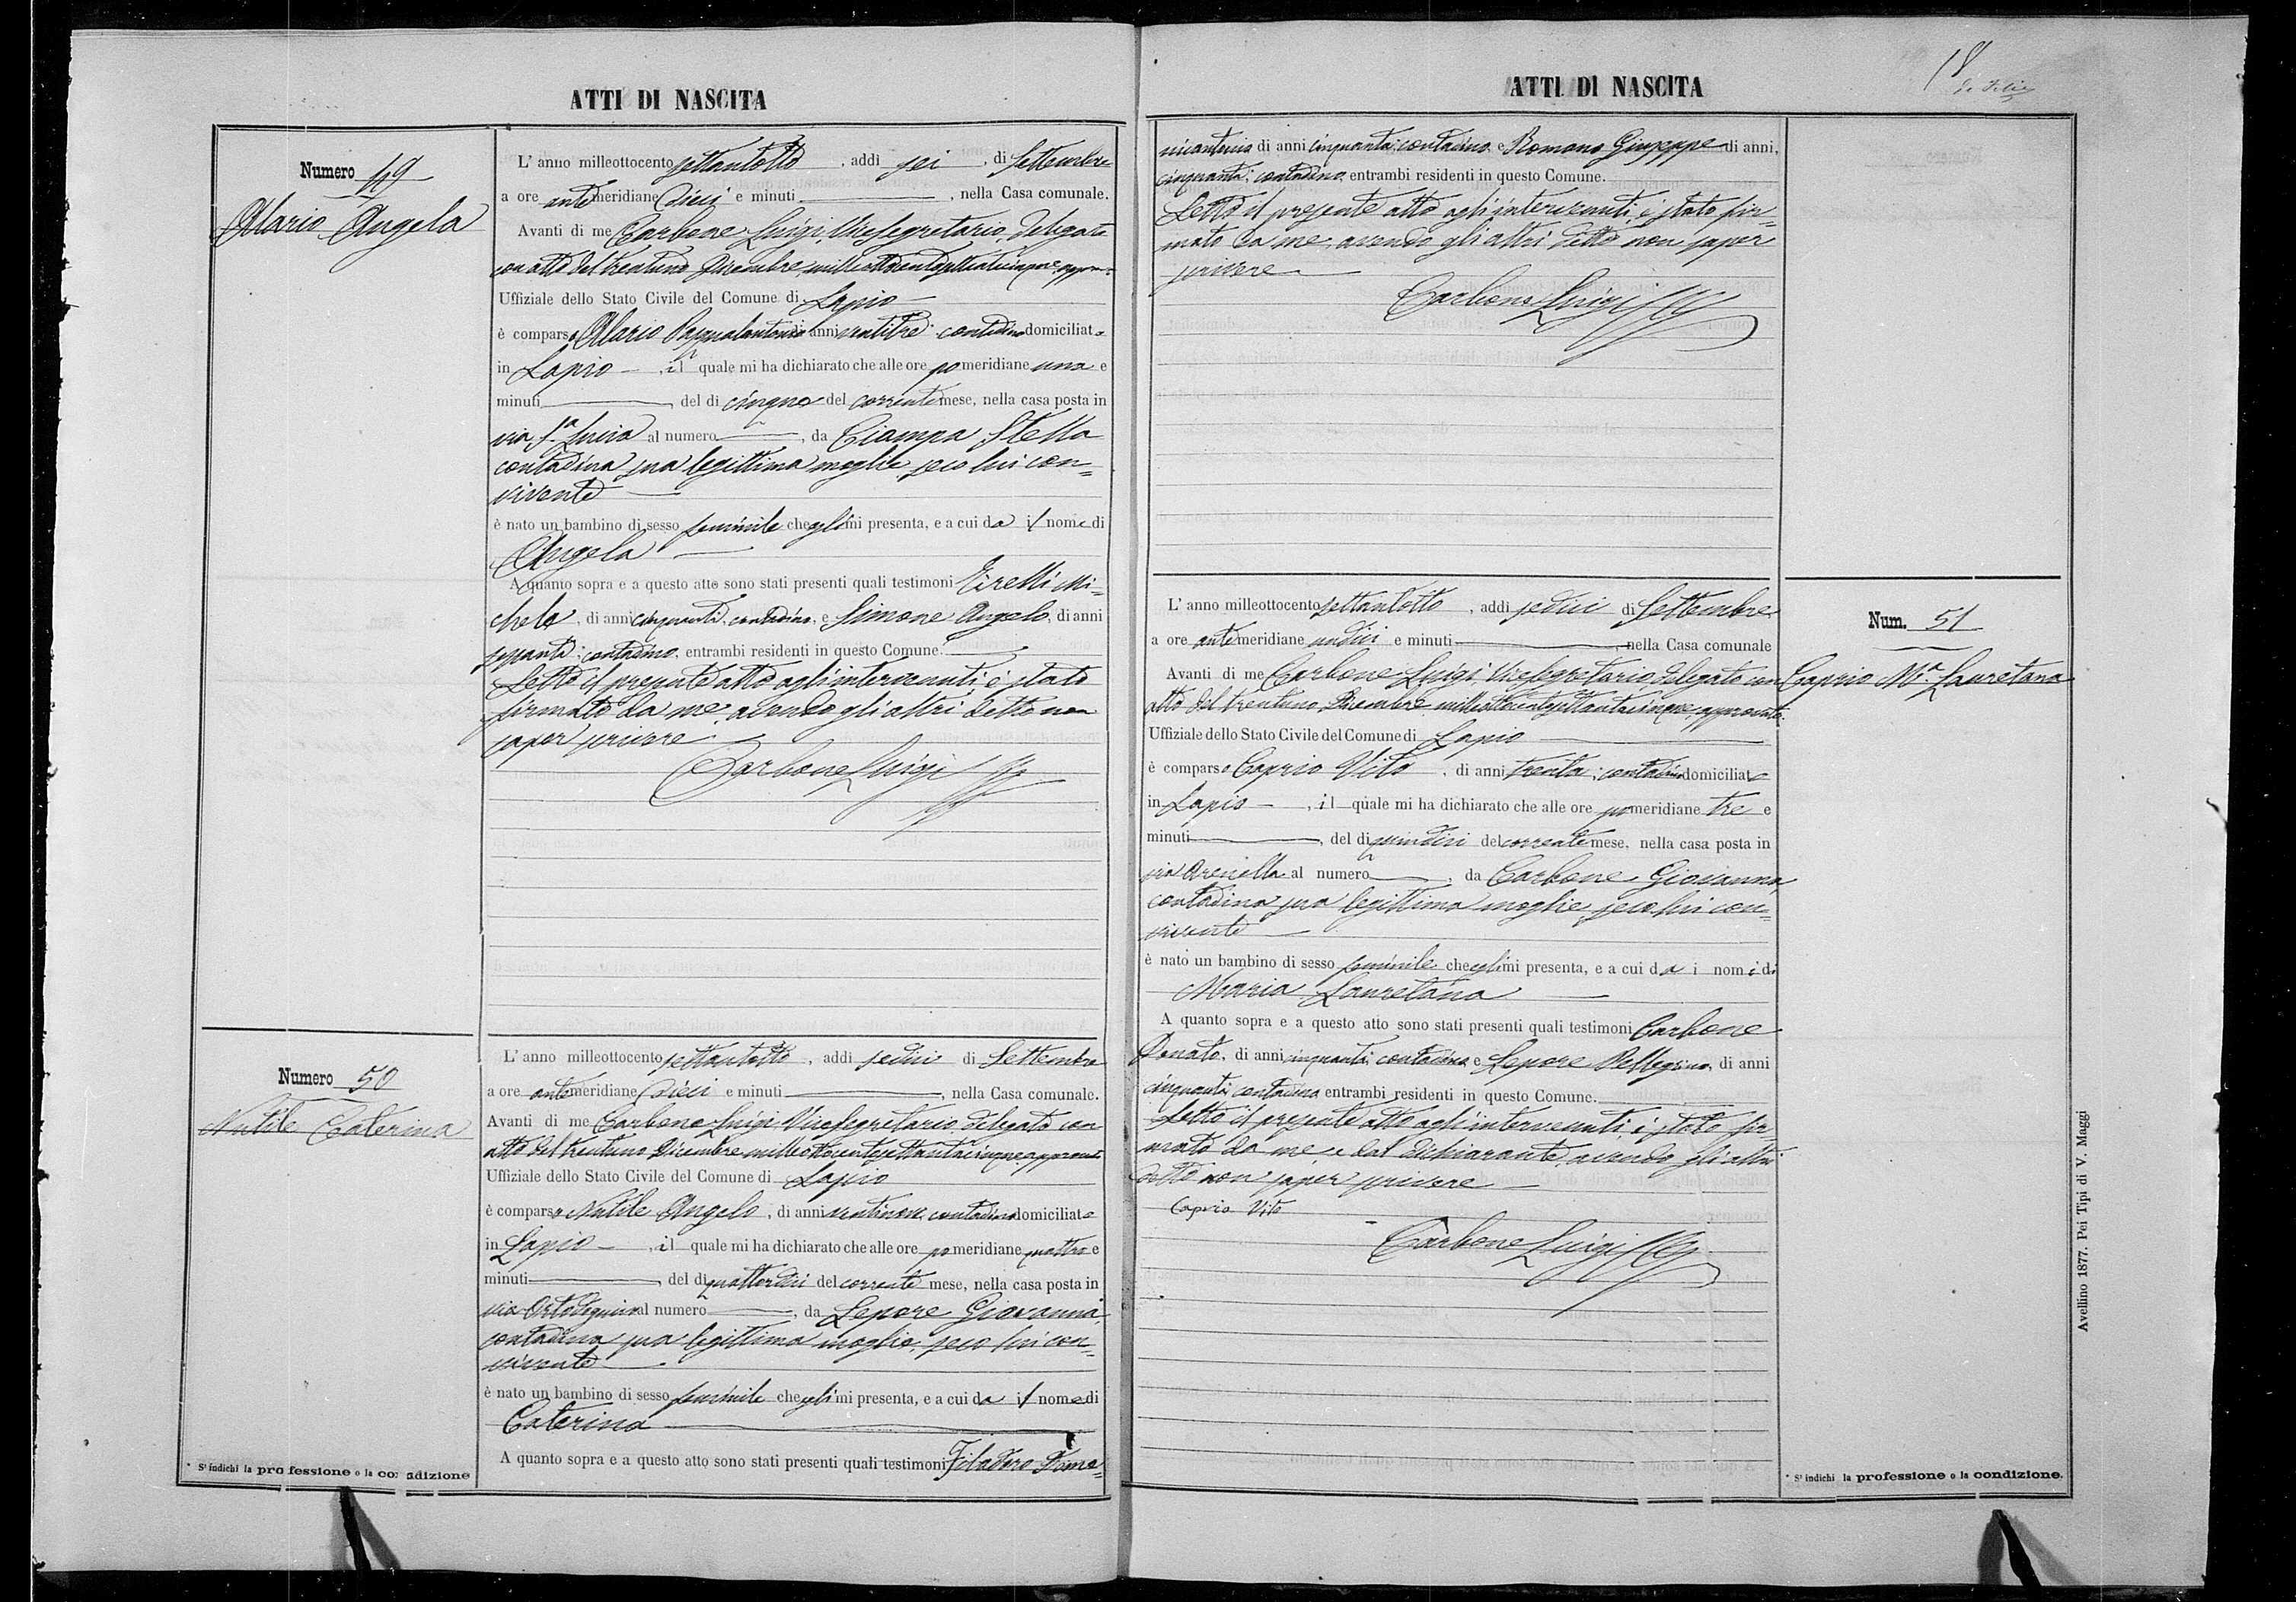 ATTI DI NASCITA
Numero 49
Alario Angela
L'anno milleottocento settantotto, addì sei, di Settembre
a ore antemeridiane dieci e minuti, nella Casa comunale.
Avanti di me Carbone Luigi, Vicesegretario, delegato
con atto del trentuno Dicembre milleottocentosettantacinque appro:
Uffiziale dello Stato Civile del Comune di Lapio
è comparso Alario Pasqualantonio di anni ventitre contadino domiciliato
in Lapio, il quale mi ha dichiarato che alle ore pomeridiane una e
minuti, del dì cinque del corrente mese, nella casa posta in
via S.a Lucia al numero, da Ciampa Stella
contadina sua legittima moglie, seco lui con=
vivente
è nato un bambino di sesso feminile che egli mi presenta, e a cui da il nome di
Angela
A quanto sopra e a questo atto sono stati presenti quali testimoni Tirelli Mi=
chele, di anni cinquanta, contadino, e Simone Angelo, di anni
sessanta, contadino, entrambi residenti in questo Comune.
Letto il presente atto agli intervenuti, è stato
firmato da me, avendo gli altri detto non
saper scrivere
Carbone Luigi
Numero 50
Nutile Caterina
L'anno milleottocento settantotto, addì sedici di Settembre
a ore antemeridiane dieci e minuti, nella Casa comunale.
Avanti di me Carbone Luigi Vicesegretario delegato con
atto del trentuno Dicembre milleottocentosettantacinque approvato
Uffiziale dello Stato Civile del Comune di Lapio
è comparso Nutile Angelo, di anni ventinove, contadino domiciliato
in Lapio, il quale mi ha dichiarato che alle ore pomeridiane quattro e
minuti, del dì quattordici del corrente mese, nella casa posta in
via al numero, da Lepore Giovanna,
contadina sua legittima moglie, seco lui con=
vivente
è nato un bambino di sesso feminile che egli mi presenta, e a cui da il nome di
Caterina
A quanto sopra e a questo atto sono stati presenti quali testimoni Filadoro Dome=
* S'indichi la professione o la condizione
ATTI DI NASCITA
18
nicantonio di anni cinquanta, contadino, e Romano Giuseppe di anni,
cinquanta, contadino, entrambi residenti in questo Comune.
Letto il presente atto agli intervenuti, è stato fir=
mato da me, avendo gli altri detto non saper
scrivere
Carbone Luigi
Num. 51
Caprio M.a Lauretana
L'anno milleottocento settantotto, addì sedici di Settembre
a ore antemeridiane undici e minuti, nella Casa comunale
Avanti di me Carbone Luigi Vicesegretario, delegato con
atto del trentuno Dicembre milleottocentosettantacinque, approvato
Uffiziale dello Stato Civile del Comune di Lapio
è comparso Caprio Vito, di anni trenta, contadino domiciliato
in Lapio, il quale mi ha dichiarato che alle ore pomeridiane tre e
minuti, del dì quindici del corrente mese, nella casa posta in
via Arenella al numero, da Carbone Giovanna
contadina sua legittima moglie seco lui con=
vivente
è nato un bambino di sesso feminile che egli mi presenta, e a cui da i nomi di
Maria Lauretana
A quanto sopra e a questo atto sono stati presenti quali testimoni Carbone
Donato, di anni cinquanta, contadino e Lepore Pellegrino, di anni
cinquanta, contadino entrambi residenti in questo Comune.
Letto il presente atto agli intervenuti, è stato fir=
mato da me e dal dichiarante, avendo gli altri
detto non saper scrivere
Caprio Vito
Carbone Luigi
* S'indichi la professione o la condizione.
Avellino 1877. Pei Tipi di V. Maggi